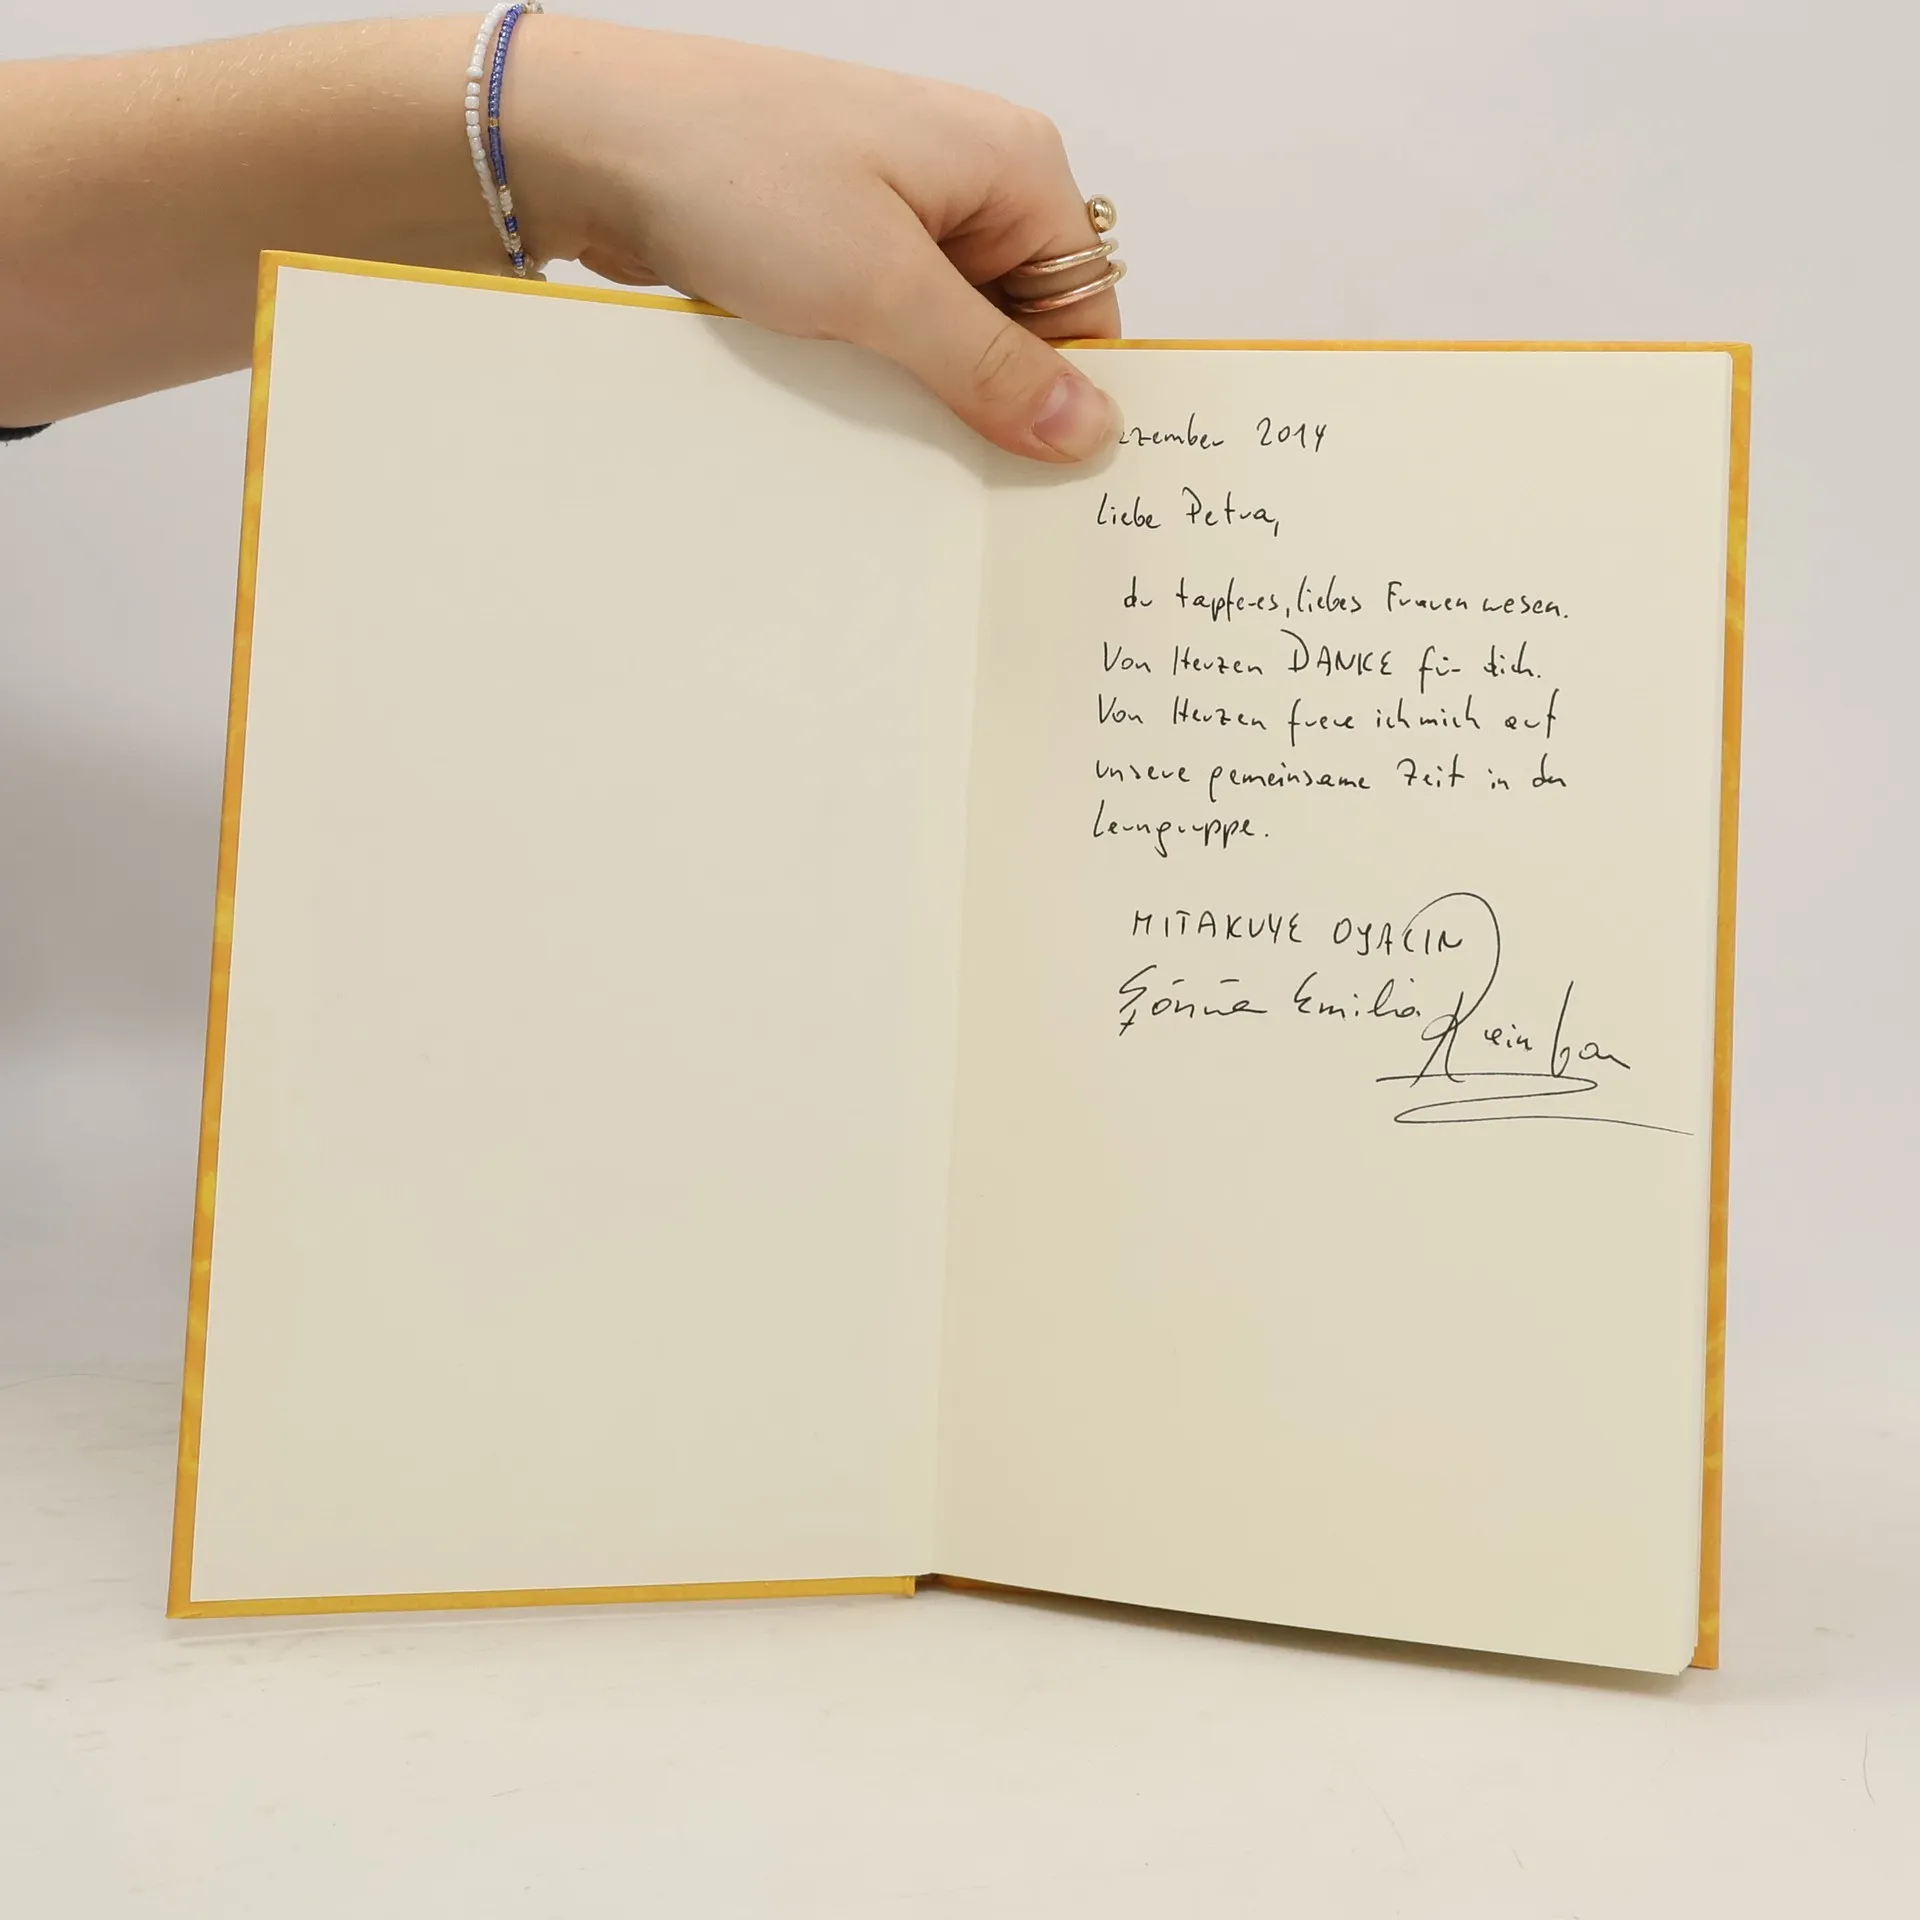 Dezember 2014
Liebe Petra,
du tapferes, liebes Frauenwesen.
Von Herzen DANKE für dich.
Von Herzen freue ich mich auf
unsere gemeinsame Zeit in der
Lerngruppe.
MITAKUYE OYACIN
Emilia